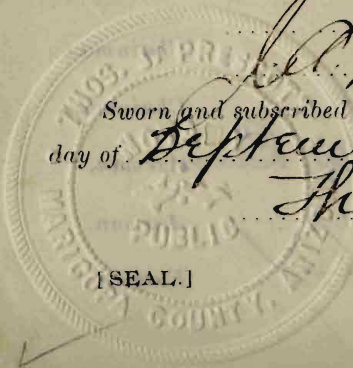 Sworn and subscribed
day of Septem
Th
[SEAL.]
THOS. J. PRES
PUBLIC
MARICOPA COUNTY, ARIZ